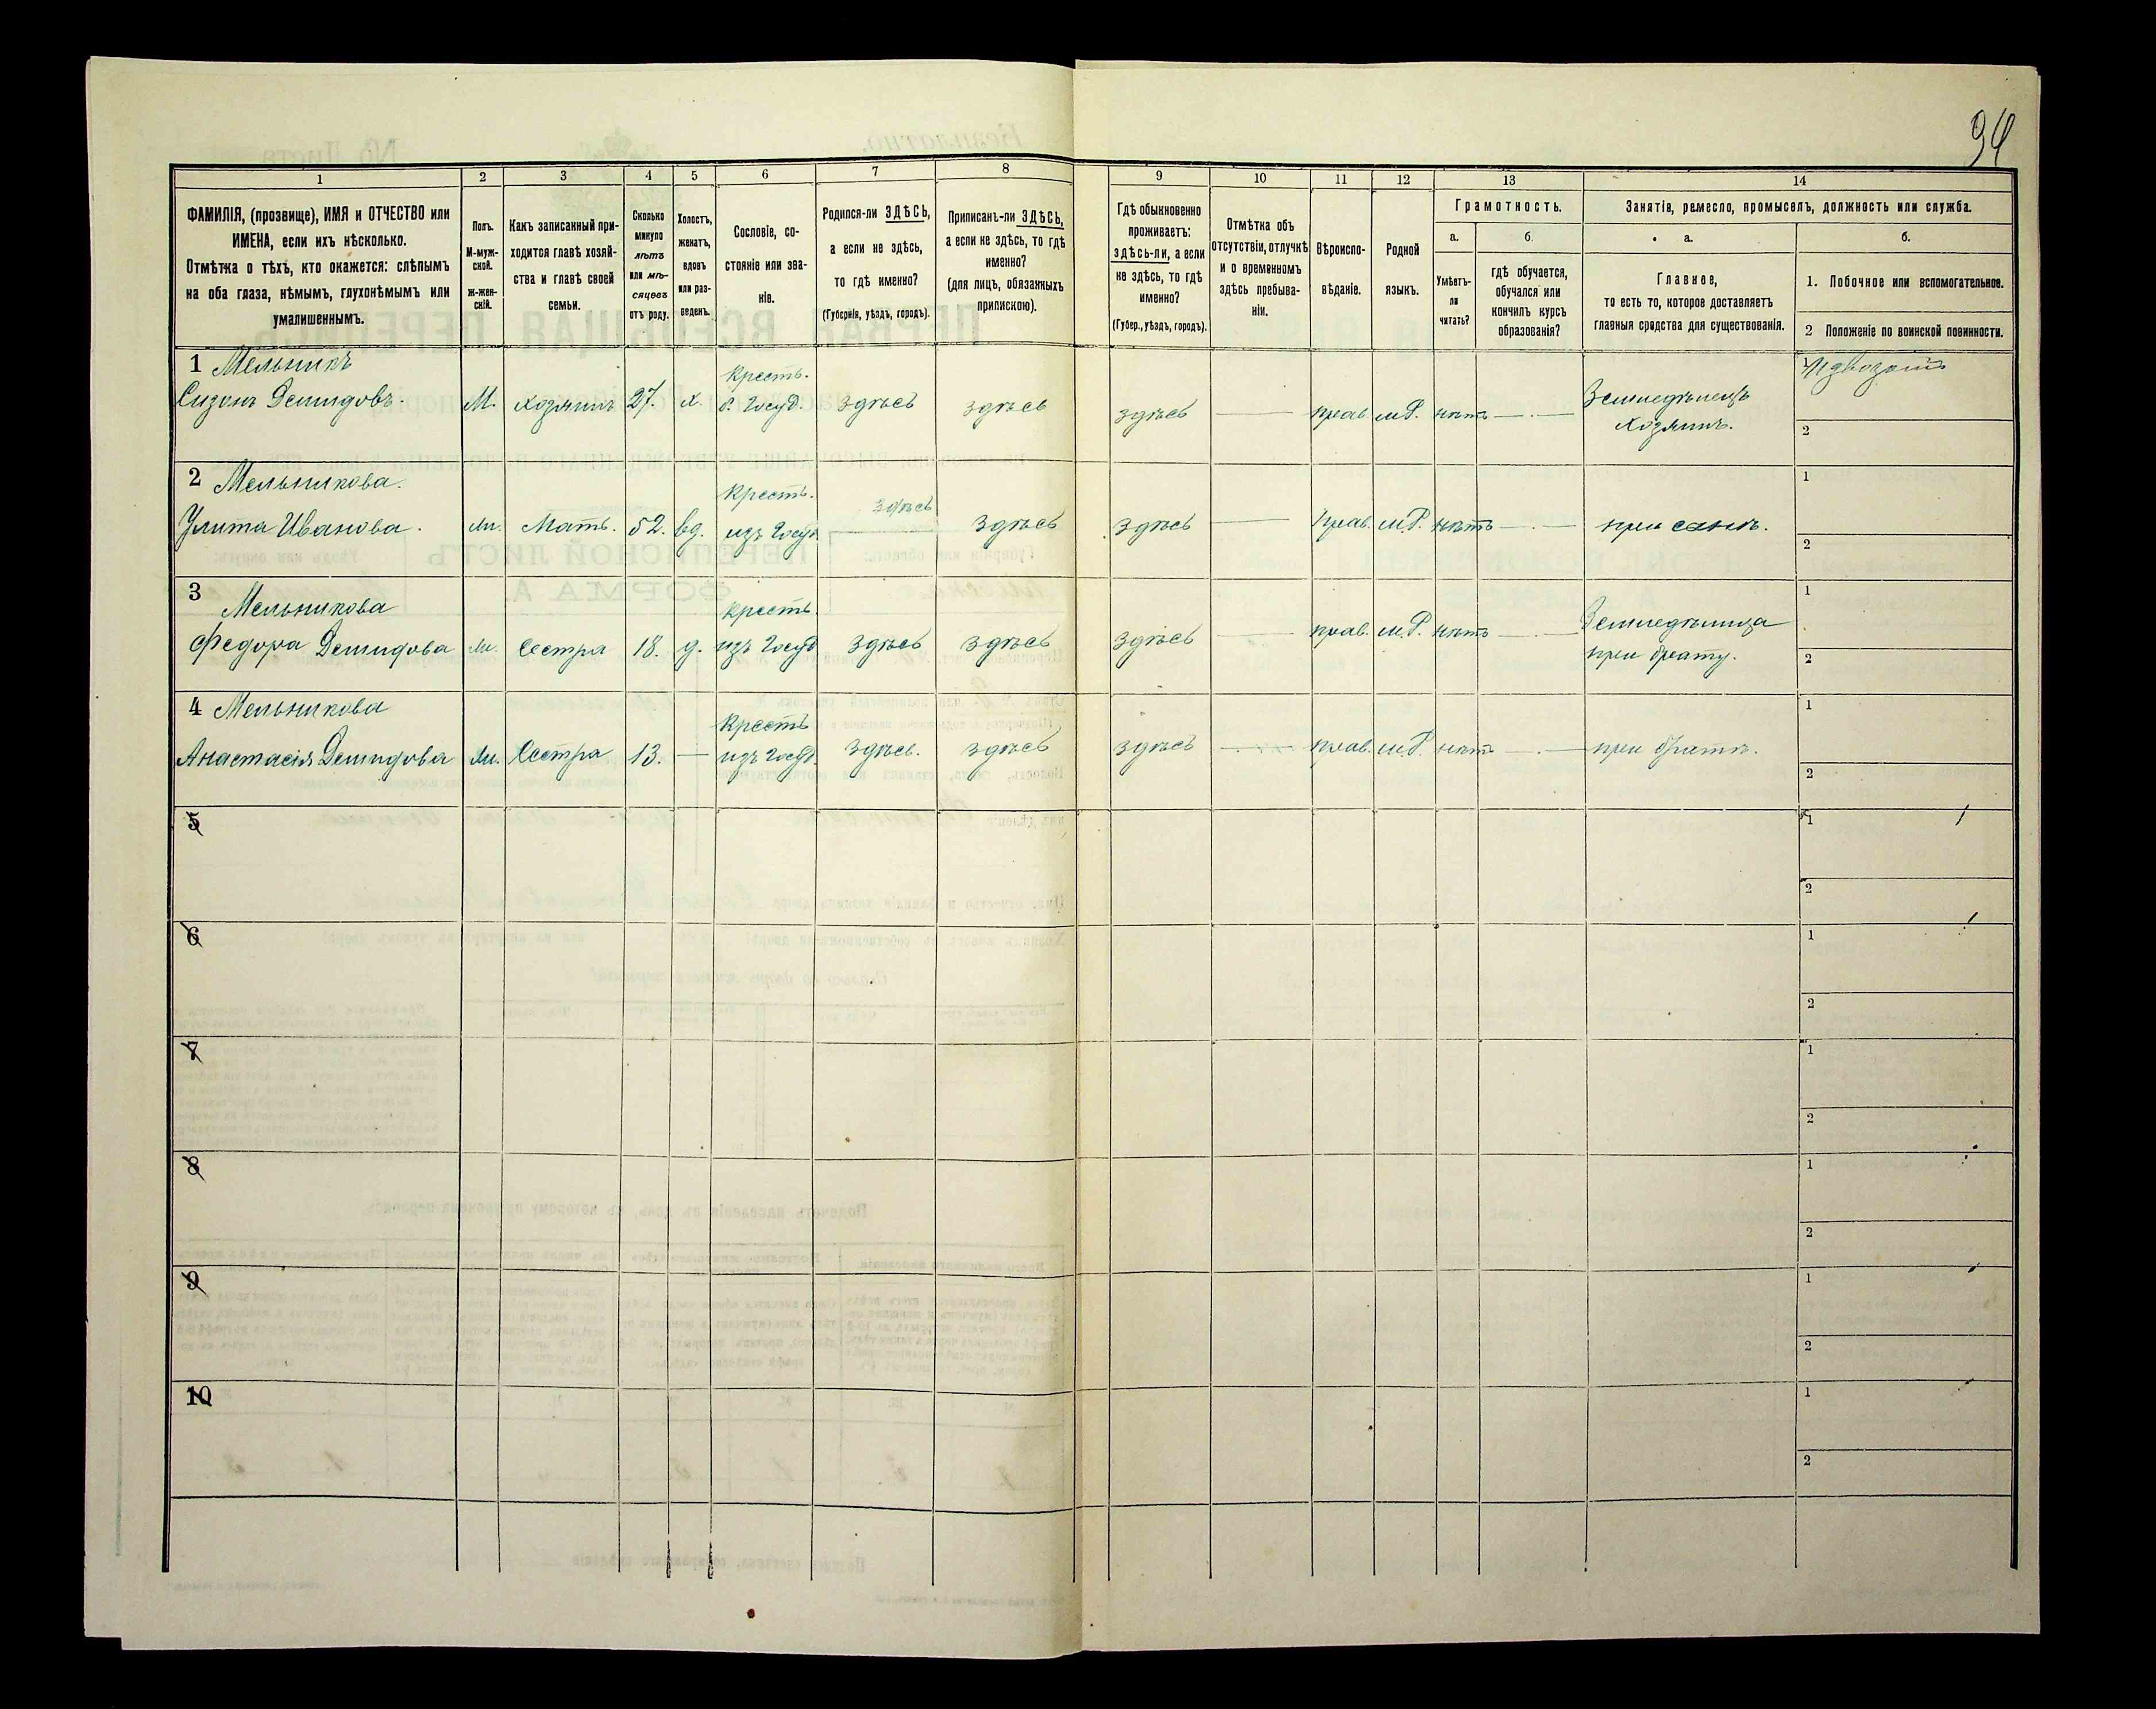 94
1 2 3 4 5 6 7 8 9 10 11 12 13 14
ФАМИЛІЯ, (прозвище), ИМЯ и ОТЧЕСТВО или
ИМЕНА, если ихъ нѣсколько.
Отмѣтка о тѣхъ, кто окажется: слѣпымъ
на оба глаза, нѣмымъ, глухонѣмымъ или
умалишеннымъ.
Полъ.
М-муж-
ской.
ж-жен-
скій.
Какъ записанный при-
ходится главѣ хозяй-
ства и главѣ своей
семьи.
Сколько
минуло
лѣтъ
или мѣ-
сяцевъ
отъ роду.
Холостъ,
женатъ,
вдовъ
или раз-
веденъ.
Сословіе, со-
стояніе или зва-
ніе.
Родился-ли ЗДѢСЬ,
а если не здѣсь,
то гдѣ именно?
(Губернія, уѣздъ, городъ).
Приписанъ-ли ЗДѢСЬ,
а если не здѣсь, то гдѣ
именно?
(для лицъ, обязанныхъ
припискою).
Гдѣ обыкновенно
проживаетъ:
здѣсь-ли, а если
не здѣсь, то гдѣ
именно?
(Губер., уѣздъ, городъ).
Отмѣтка объ
отсутствіи, отлучкѣ
и о временномъ
здѣсь пребыва-
ніи.
Вѣроиспо-
вѣданіе.
Родной
языкъ.
Грамотность.
а.
Умѣетъ-
ли
читать?
б.
гдѣ обучается,
обучался или
кончилъ курсъ
образованія?
Занятіе, ремесло, промыселъ, должность или служба.
а.
Главное,
то есть то, которое доставляетъ
главныя средства для существованія.
б.
1. Побочное или вспомогательное.
2 Положеніе по воинской повинности.
1 Мельникъ Кресть.
Сизонъ Демидовъ. М. хозяинъ 27. х. б. Госуд. здѣсь здѣсь здѣсь — прав. м.Р. нѣтъ — Земледѣлецъ
хозяинъ.
2
2 Мельникова. Кресть. 1
Улита Иванова. ж. Мать. 52. вд. изъ Госуд. здѣсь здѣсь здѣсь — прав. м.Р. нѣтъ — при сынѣ.
2
3 Мельникова Кресть. 1
Федора Демидова ж. Сестра 18. д. изъ Госуд. здѣсь здѣсь здѣсь — прав. м.Р. нѣтъ — Земледѣлица
при брату.
2
4 Мельникова Кресть 1
Анастасія Демидова ж. Сестра 13. — изъ Госуд. здѣсь. здѣсь здѣсь — прав. м.Р. нѣтъ — при братѣ.
2
5 1
2
6 1
2
7 1
2
8 1
2
9 1
2
10 1
2